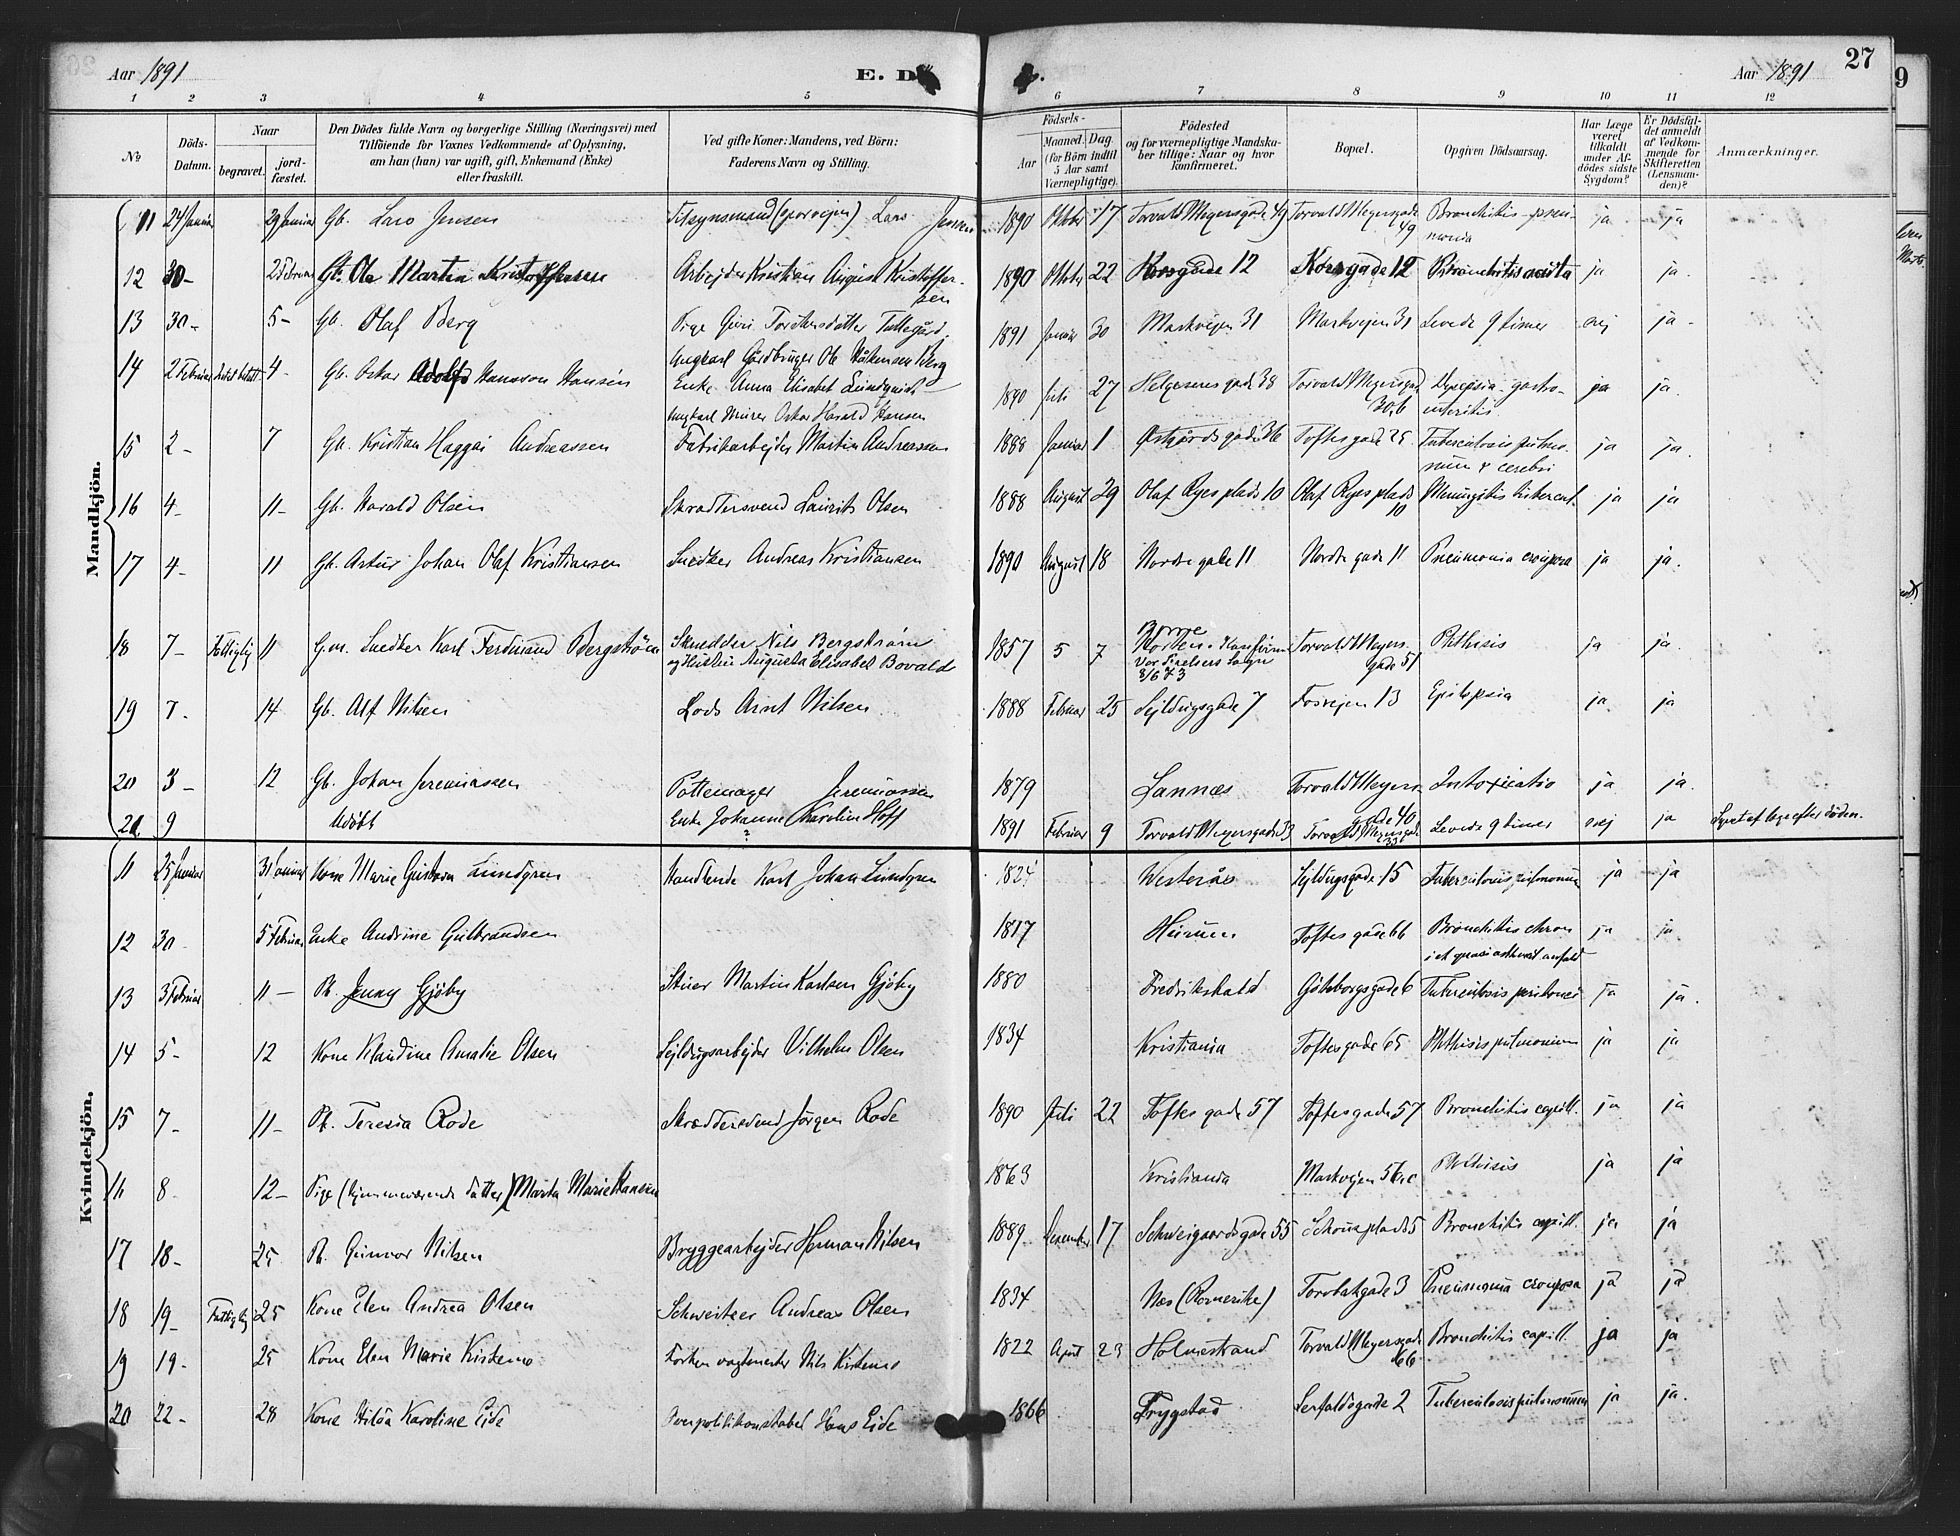 Aar 1891 E. D. Aar 1891 27
1 2 3 4 5 6 7 8 9 10 11 12
No Döds-Datum. Naar begravet. jord-fæstet. Den Dödes fulde Navn og borgerlige Stilling (Næringsvei) med Tilföiende for Voxnes Vedkommende af Oplysning, om han (hun) var ugift, gift, Enkemand (Enke) eller fraskilt. Ved gifte Koner: Mandens, ved Börn: Faderens Navn og Stilling. Födsels- Aar Maaned. Dag. (for Börn indtil 5 Aar samt Værnepligtige). Födested og for værnepligtige Mandska-ber tillige: Naar og hvor konfirmeret. Bopæl. Opgiven Dödsaarsag. Har Læge været tilkaldt under Af-dödes sidste Sygdom? Er Dödsfal-det anmeldt af Vedkom-mende for Skifteretten (Lensman-den)? Anmærkninger.
Mandkjön.
11 24 Januar 29 Januar Gb. Lars Jensen Tilsynsmand (sporveien) Lars Jensen 1890 Oktober 17 Torvald Meyersgade 49 Torvald Meyersgade 49 Bronchitis pneu-monia ja ja
12 30- 2 Februar Gb. Ole Martin Kristoffersen Arbejder Kristian August Kristoffer-sen 1890 Oktober 22 Korsgade 12 Korsgade 12 Bronchitis acuta ja ja.
13 30- 5- Gb. Olaf Berg Pige Guri Torstensdatter Tollegård, Ungkarl Gårdbruger Ole Håkensen Berg 1891 Januar 30 Markvejen 31 Markvejen 31 Levede 9 timer nej ja-
14 2 Februar 4- Gb. Oskar Adolf Hansson Hansen Enke Anna Elisabet Lundqvist Ungkarl Murer Oskar Harald Hansen 1890 Juli 27 Helgesensgade 38 Torvald Meyersgade 30b Dyspepsia gastro-enteritis ja ja.
15 2- 7 Gb. Kristian Haggai Andreassen Fabrikarbejder Martin Andreassen 1888 Januar 1 Østgårdsgade 36 Toftesgade 25 Tuberculosis pulmo-num & cerebri ja ja.
16 4- 11- Gb. Harald Olsen Skræddersvend Laurits Olsen 1888 August 29 Olaf Ryes plads 10 Olaf Ryes plads 10 Meningitis tubercul. ja ja
17 4- 11 Gb. Artur Johan Olaf Kristiansen Snedker Andreas Kristiansen 1890 August 18 Nordregade 11 Nordregade 11 Pneumonia crouposa ja ja.
18 7- Fattiglig 11 G.m. Snedker Karl Ferdinand Bergstrøm Skrædder Nils Bergstrøm og Hustru Augusta Elisabet Bovald 1857 5 7 Borre Horten. Konfirm. Vor Frelsers Sogn 8/6 73 Torvald Meyers gade 51 Phthisis ja ja.
19 7- 14 Gb. Alf Nilsen Lods Arnt Nilsen 1888 Februar 25 Sejldugsgade 7 Fosvejen 13 Epilepsia ja ja
20 3- 12 Gb. Johan Jeremiassen Pottemager Jeremiassen 1879 Lannæs Torvald Meyers gade 40 Intoxicatio ja ja.
21 9 Udöbt Enke Johanne Karoline Hoff ? 1891 Februar 9 Torvald Meyersgade 33 Torvald Meyersgade 33 Levede 9 timer nej ja Synet af læge efter döden.
Kvindekjön.
11 25 Januar 31 Januar Kone Marie Gustava Lundgren Handlende Karl Johan Lundgren 1824 Westerås Sejldugsgade 15 Tuberculosis pulmonum ja ja
12 30 5 Februar Enke Andrine Gulbrandsen 1817 Hurum Toftesgade 66 Bronchitis chron ja ja
13 3 Februar 11- Pb. Jenny Gjöby Stuer Martin Karlsen Gjöby 1880 Fredrikshald Göteborgsgade 6 Tuberculosis peritonei ja ja.
14 5- 12 Kone Klaudine Amalie Olsen Sejldugsarbejder Vilhelm Olsen 1834 Kristiania Toftesgade 65 Phthisis pulmonum ja ja
15 7- 11- Pb. Teresia Rode Skræddersvend Jörgen Rode 1890 Juli 22 Toftesgade 57 Toftesgade 57 Bronchitis capill. ja ja
16 8- 12- Pige (hjemmeværende datter) Marta Marie Hansen 1863 Kristiania Markvejen 56 Phthisis ja ja
17 18- 25 Pb. Gunvor Nilsen Bryggearbejder Herman Nilsen 1889 Desember 17 Schweigaardsgade 55 Schous plads 5 Bronchitis capill. ja ja
18 19- Fattiglig 25 Kone Elen Andrea Olsen Schweitser Andreas Olsen 1834 Næs (Romerike) Torvbakgade 3 Pneumonia crouposa ja ja
19 19- 25 Kone Elen Marie Kistemo Nils Kistemo 1822 April 23 Holmestrand Torvald Meyersgade 66 Bronchitis capill. ja ja
20 22- 28 Kone Hilda Karoline Eide Overpolitikonstabel Hans Eide 1866 Trygstad Serfaldsgade 2 Tuberculosis pulmonum ja ja.